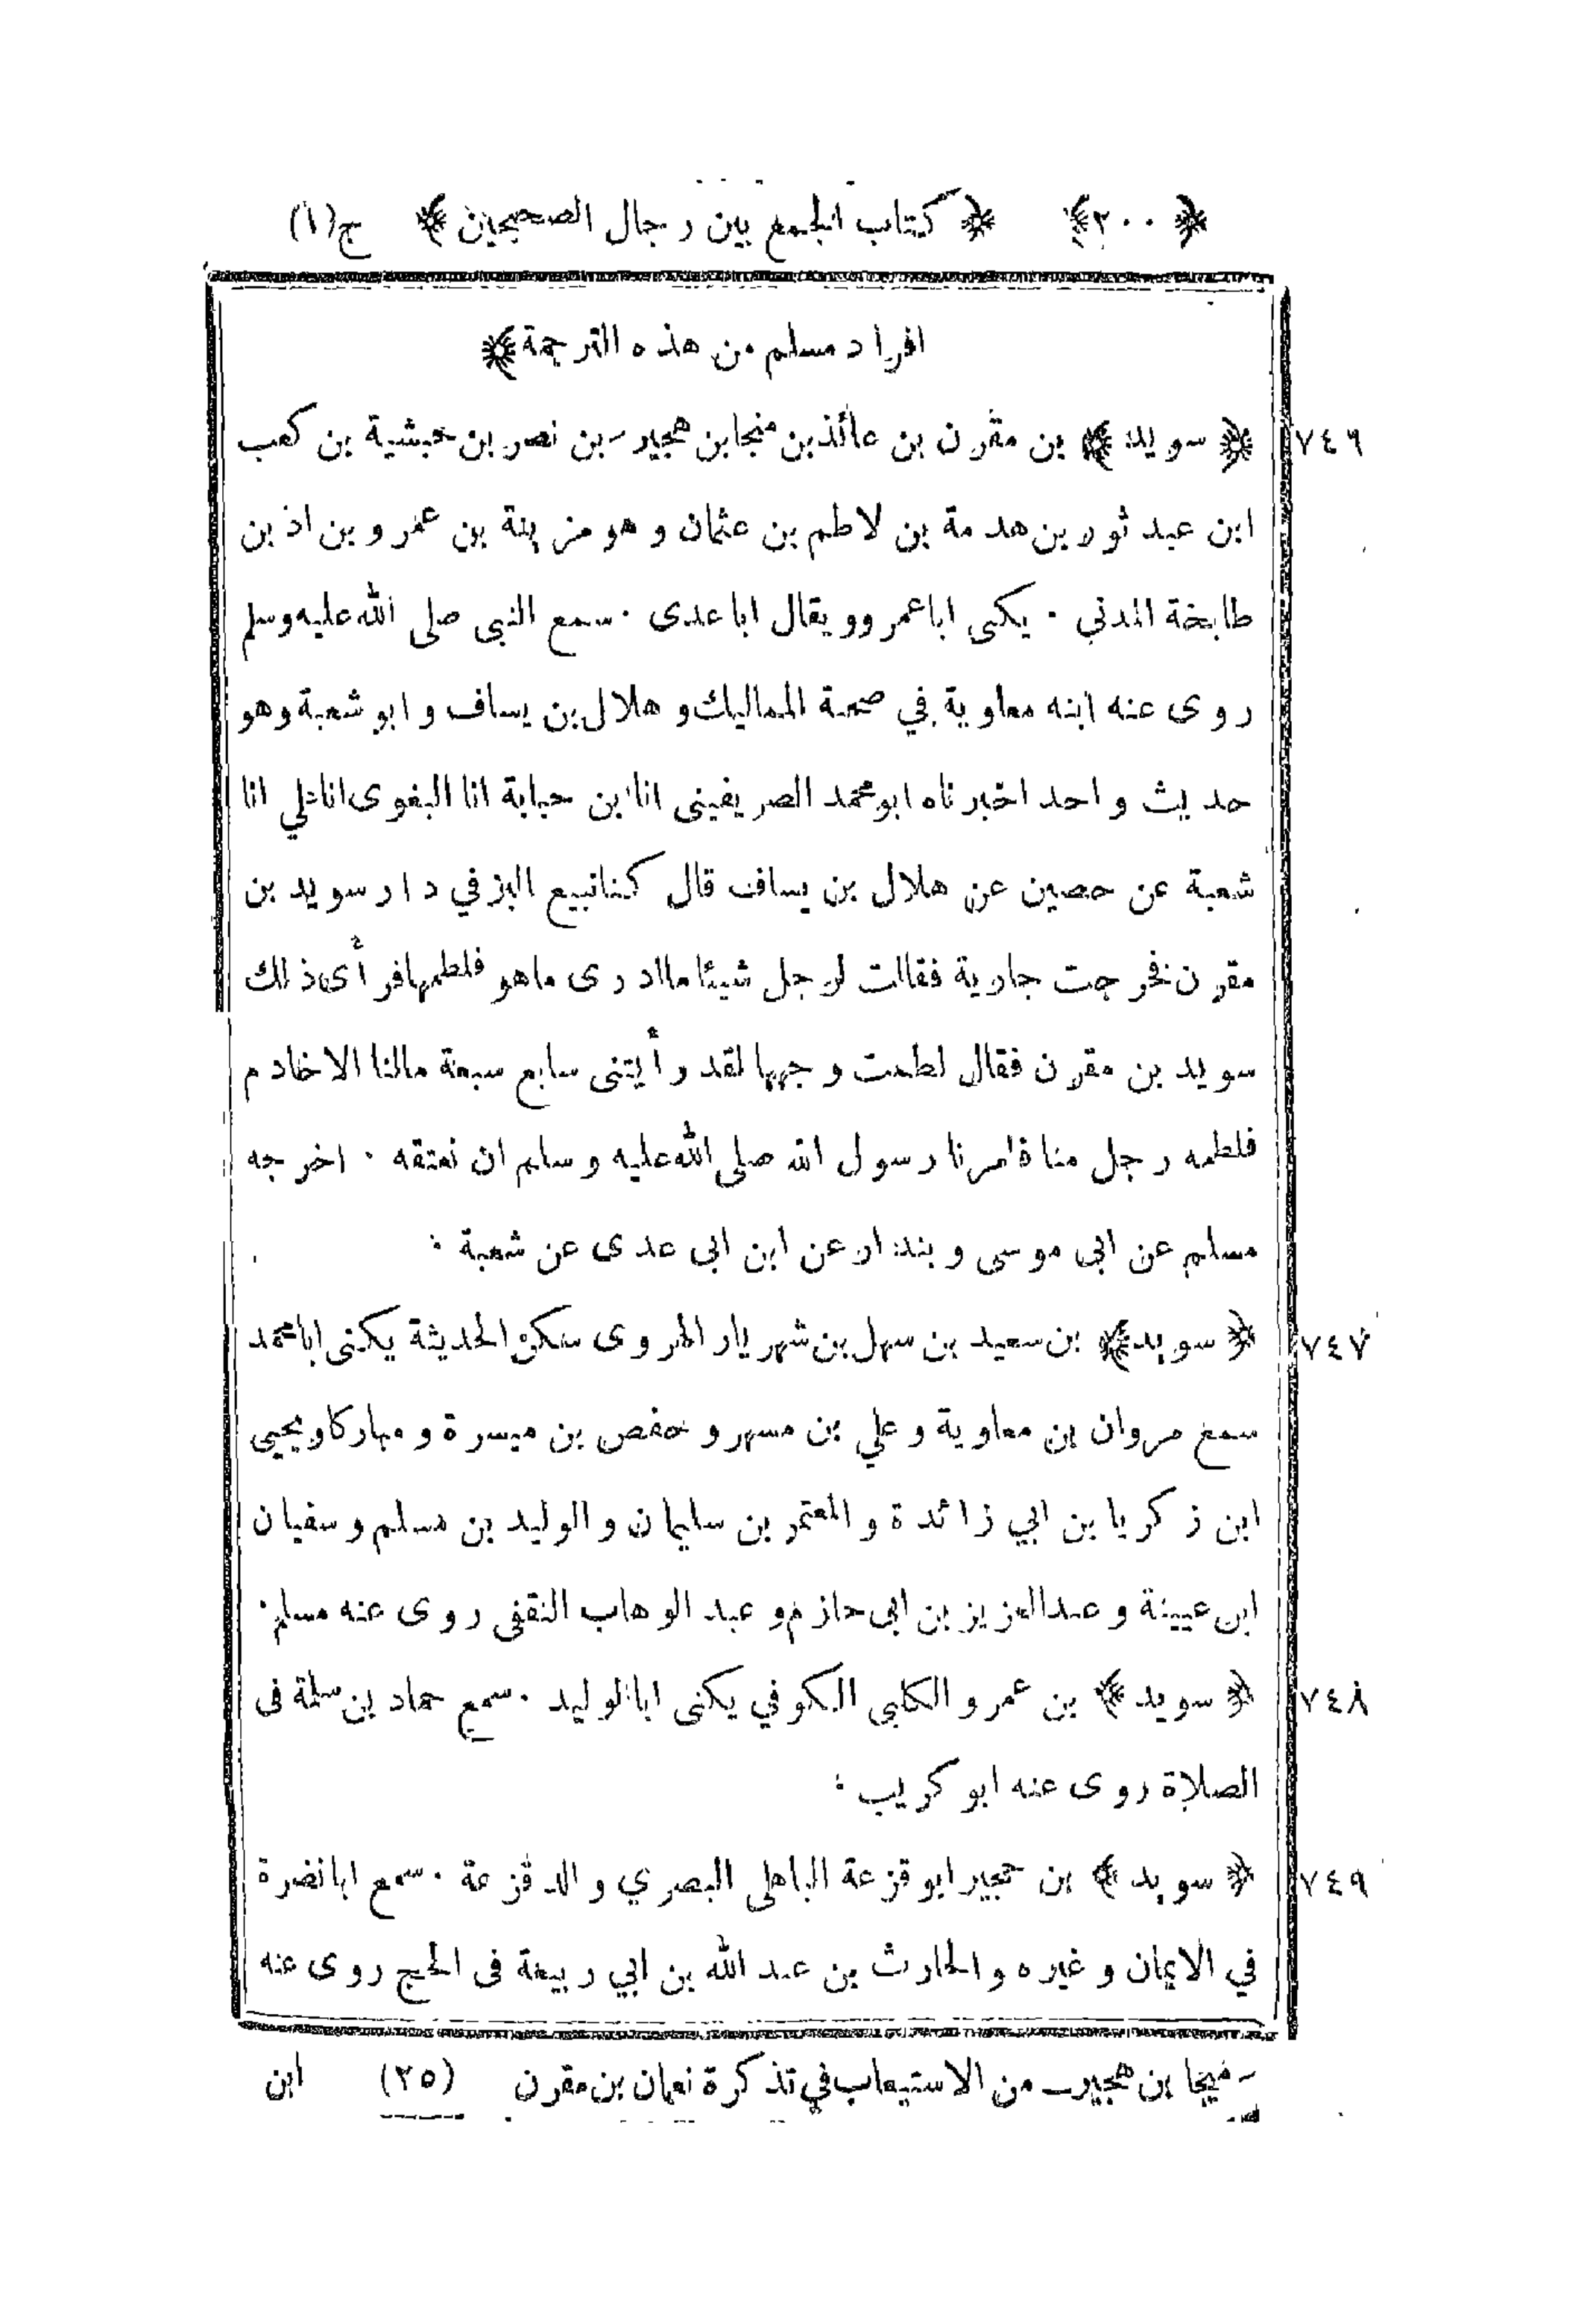 ﴿٢٠٠﴾ ﴿كتاب الجمع بين رجال الصحيحين﴾ ج(١)
افراد مسلم من هذه الترجمة﴾
٧٤٦ ﴿سويد﴾ بن مقرن بن عائذ بن منجا بن هجير بن نصر بن حبشية بن كعب
ابن عبد ثور بن هدمة بن لاطم بن عثمان وهو مزينة بن عمرو بن اد بن
طابخة المدني . يكنى ابا عمرو ويقال ابا عدى . سمع النبى صلى الله عليه وسلم
روى عنه ابنه معاوية في صحبة المماليك وهلال بن يساف وابو شعبة وهو
حديث واحد اخبرناه ابو محمد الصريفينى انا ابن حبابة انا البغوى انا علي انا
شعبة عن حصين عن هلال بن يساف قال كنا نبيع البز في دار سويد بن
مقرن فخرجت جارية فقالت لرجل شيئا ما ادرى ما هو فلطمها فرأى ذلك
سويد بن مقرن فقال لطمت وجهها لقد رأيتنى سابع سبعة مالنا الا خادم
فلطمه رجل منا فامرنا رسول الله صلى الله عليه وسلم ان نعتقه . اخرجه
مسلم عن ابي موسى وبندار عن ابن ابى عدى عن شعبة .
٧٤٧ ﴿سويد﴾ بن سعيد بن سهل بن شهريار الهروى سكن الحديثة يكنى ابا محمد
سمع مروان بن معاوية وعلي بن مسهر وحفص بن ميسرة ومباركا ويحيى
ابن زكريا بن ابي زائدة والمعتمر بن سليمان والوليد بن مسلم وسفيان
ابن عيينة وعبد العزيز بن ابى حازم وعبد الوهاب الثقفى روى عنه مسلم .
٧٤٨ ﴿سويد﴾ بن عمرو الكلبى الكوفي يكنى ابا الوليد . سمع حماد بن سلمة فى
الصلاة روى عنه ابو كريب .
٧٤٩ ﴿سويد﴾ بن حجير ابو قزعة الباهلى البصري والد قزعة . سمع ابا نضرة
في الايمان وغيره والحارث بن عبد الله بن ابي ربيعة فى الحج روى عنه
منجا بن هجير من الاستيعاب في تذكرة نعمان بن مقرن (٢٥) ابن